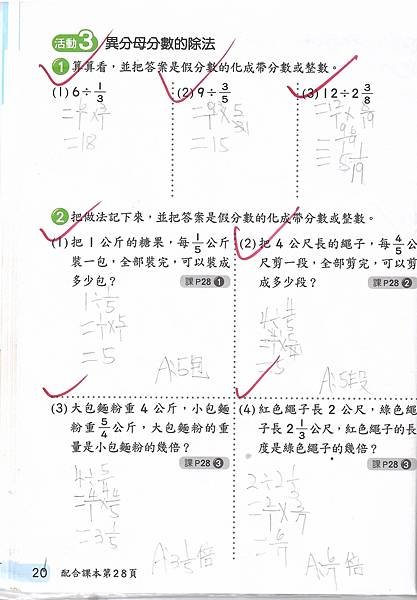 活動3 異分母分數的除法
1 算算看，並把答案是假分數的化成帶分數或整數。
(1) 6÷1/3 (2) 9÷3/5 (3) 12÷2 3/8
=18
=15
=5 1/19
2 把做法記下來，並把答案是假分數的化成帶分數或整數。
(1) 把 1 公斤的糖果，每 1/5 公斤
裝一包，全部裝完，可以裝成
多少包？
課P28 1
1÷1/5
=5
A:5包
(2) 把 4 公尺長的繩子，每 4/5 公
尺剪一段，全部剪完，可以剪
成多少段？
課P28 2
4÷4/5
=5
A:5段
(3) 大包麵粉重 4 公斤，小包麵
粉重 5/4 公斤，大包麵粉的重
量是小包麵粉的幾倍？
課P28 3
4÷5/4
=3 1/5
A:3 1/5 倍
(4) 紅色繩子長 2 公尺，綠色繩
子長 2 1/3 公尺，紅色繩子的長
度是綠色繩子的幾倍？
課P28 3
2÷2 1/3
=2/1×3/7
=6/7
A:6/7 倍
20 配合課本第28頁